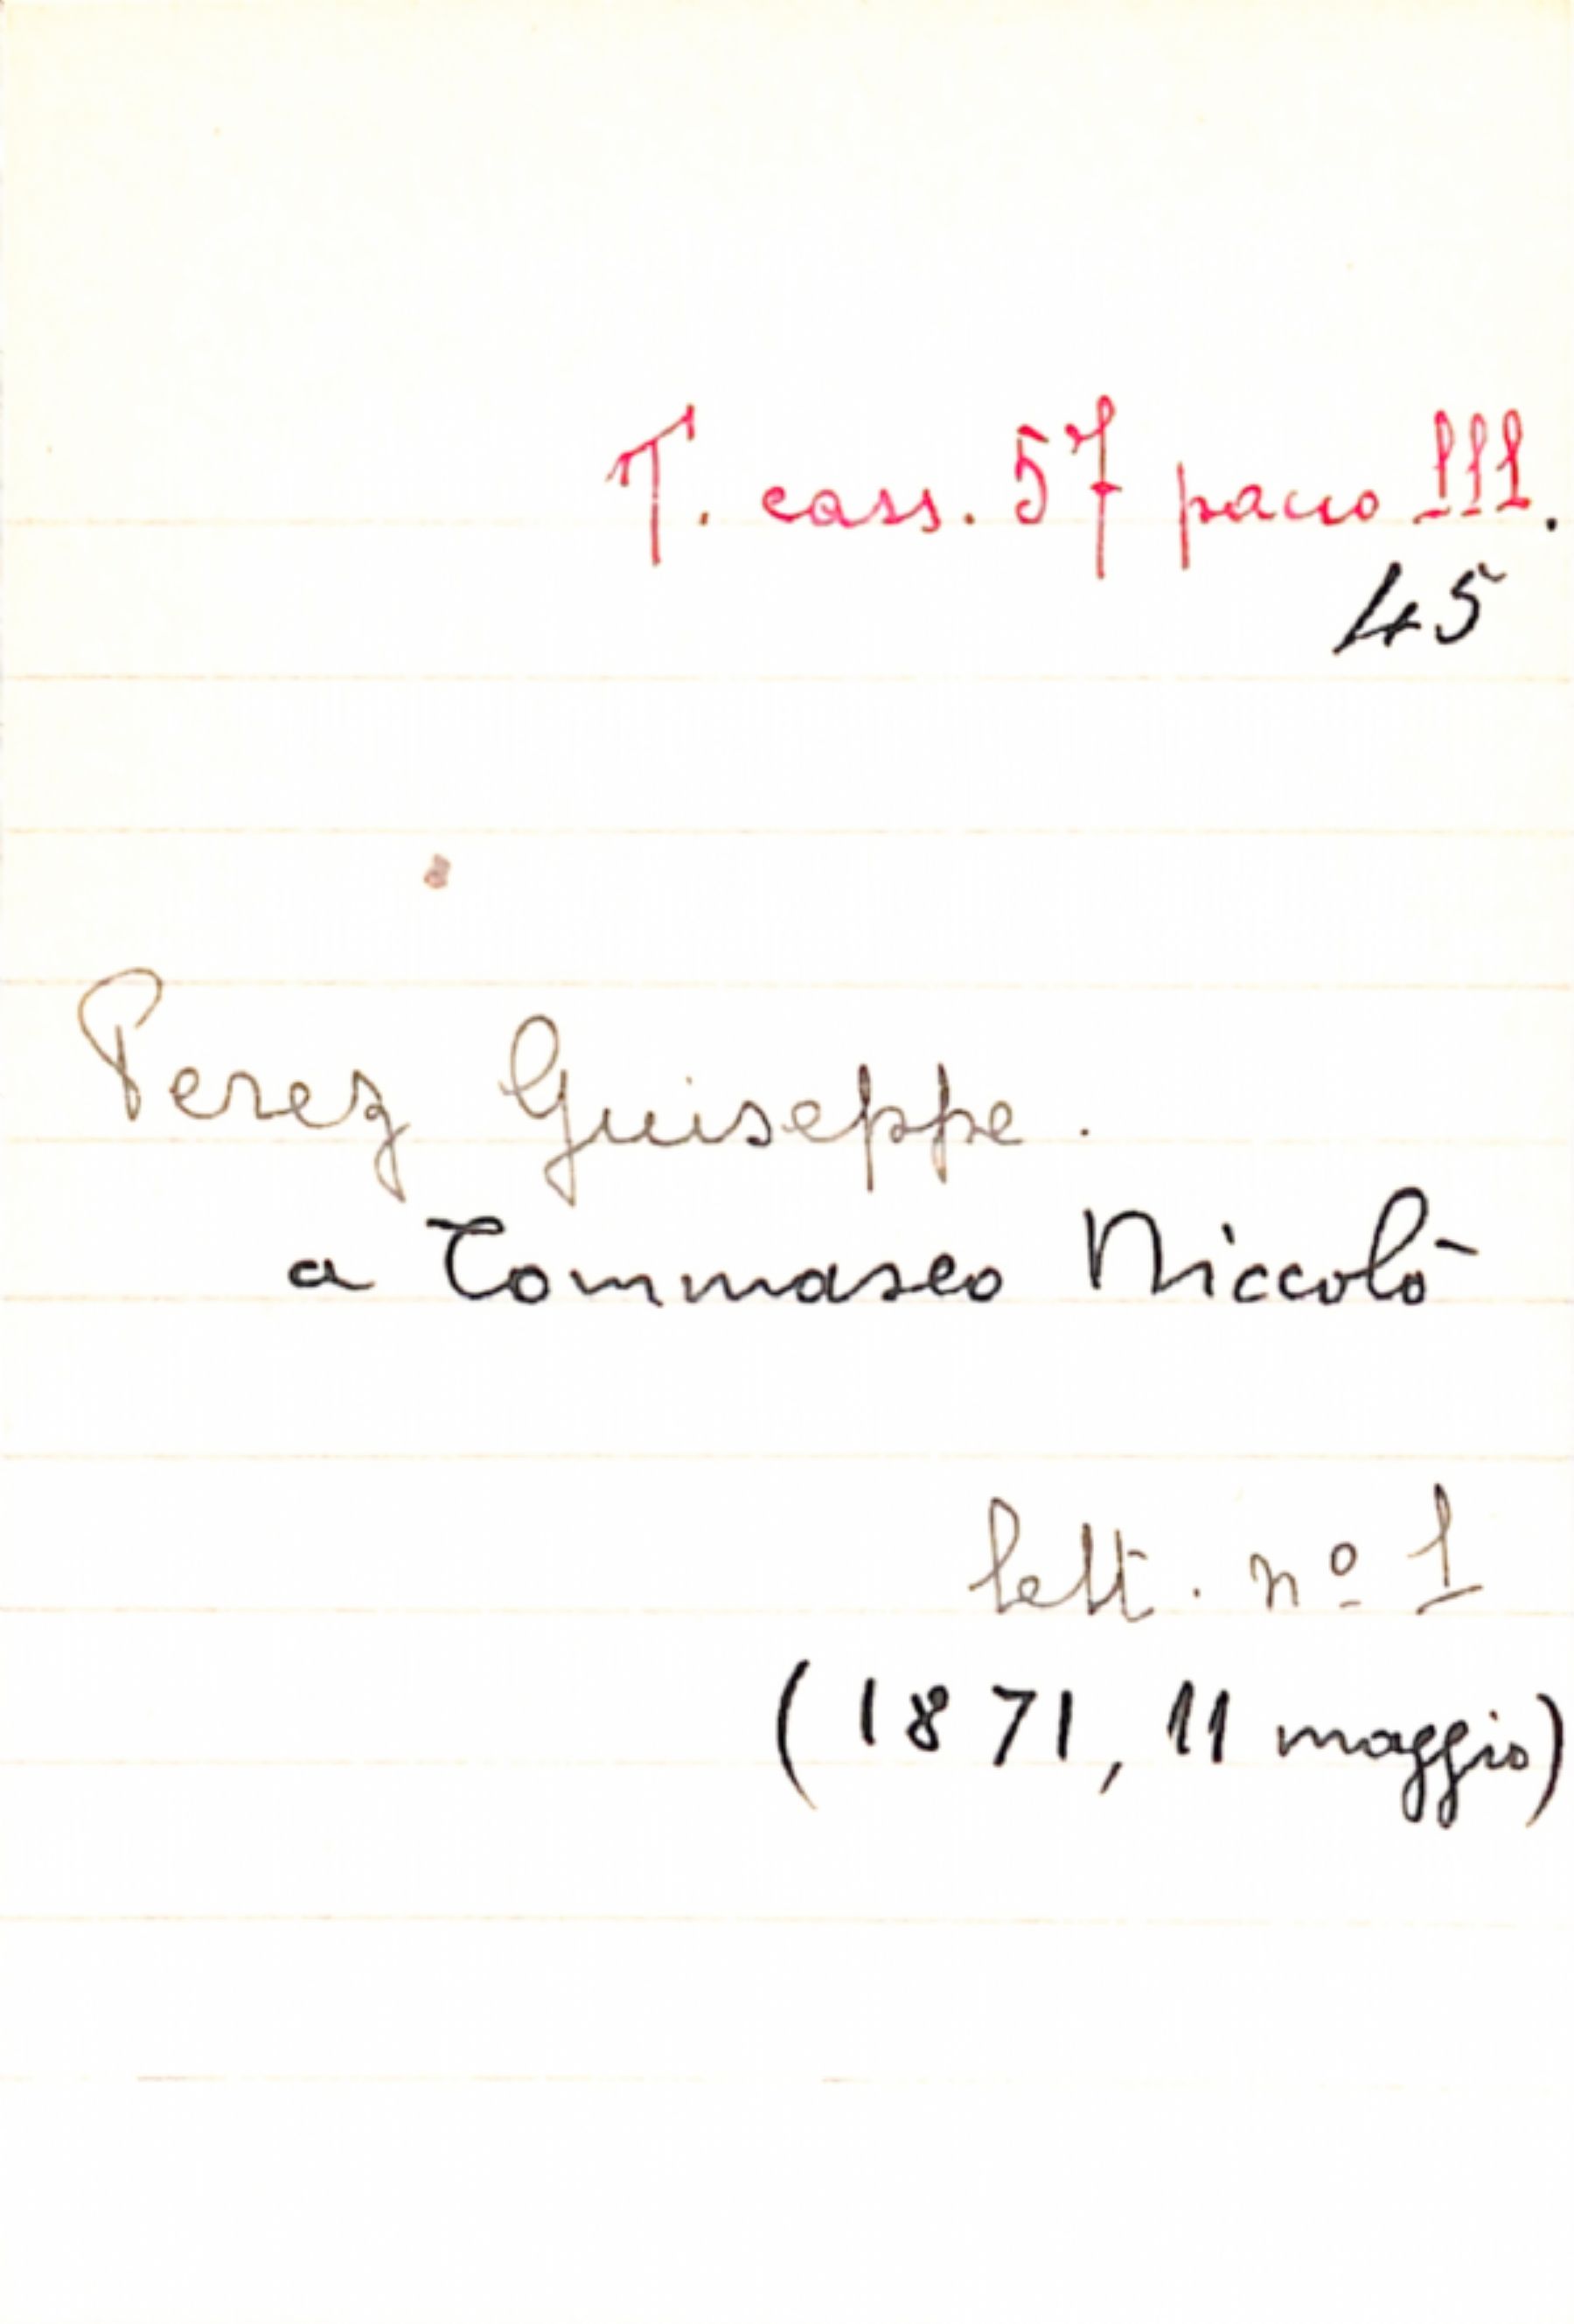 T. cass. 57 pacco III.
45
Perez Giuseppe.
a Tommaseo Niccolò
lett. nº 1
(1871, 11 maggio)